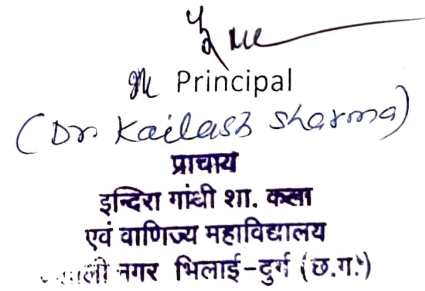 Principal
(Dr. Kailash Sharma)
प्राचार्य
इन्दिरा गांधी शा. कला
एवं वाणिज्य महाविद्यालय
नगर भिलाई-दुर्ग (छ.ग.)